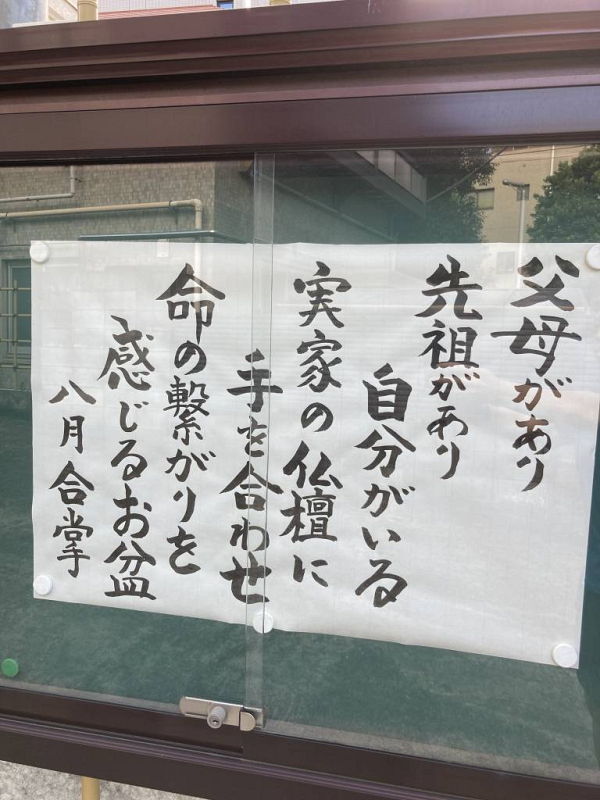 父母があり
先祖があり
自分がいる
実家の仏壇に
手を合わせ
命の繋がりを
感じるお盆
八月 合掌